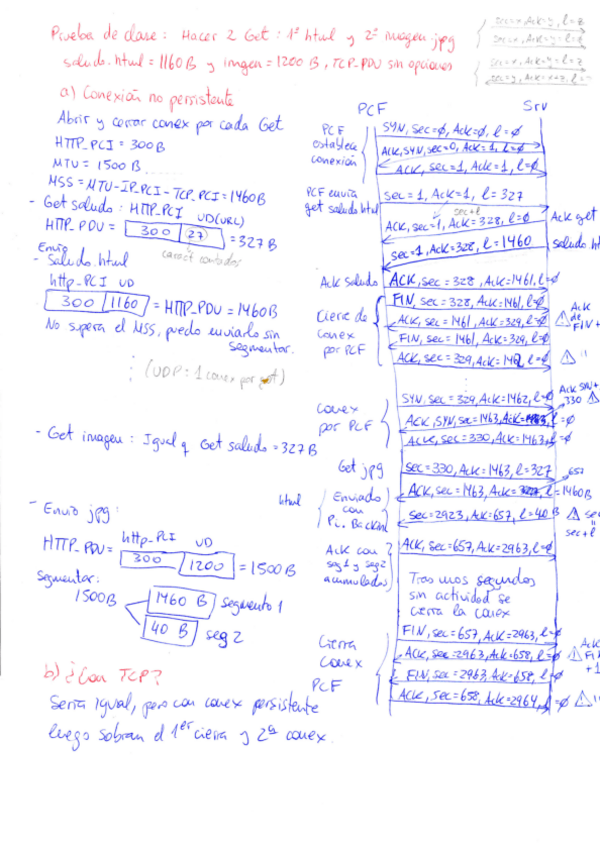 Prueba de clase: Hacer 2 Get: 1º html y 2º imagen.jpg
saludo.html = 1160B y imagen = 1200B, TCP-PDU sin opciones
a) Conexión no persistente
Abrir y cerrar conex por cada Get
HTTP_PCI = 300B
MTU = 1500B
MSS = MTU-IP_PCI-TCP_PCI = 1460B
- Get saludo: HTTP_PCI UD(URL)
HTTP_PDU = 300 27 = 327B
caract contados
Envio
- Saludo.html
http-PCI UD
300 1160 = HTTP_PDU = 1460B
No supera el MSS, puedo enviarlo sin
segmentar.
(UDP: 1 conex por get)
- Get imagen: Igual q Get saludo = 327B
- Envio jpg:
http-PCI UD
HTTP_PDU = 300 1200 = 1500B
Segmentar:
1500B
1460 B segmento 1
40 B seg 2
b) ¿Con TCP?
Sería igual, pero con conex persistente
luego sobran el 1er cierra y 2ª conex.
PCF Srv
PCF
establece
conexión
SYN, sec=0, Ack=0, l=0
ACK,SYN, sec=0, Ack=1, l=0
ACK, sec=1, Ack=1, l=0
PCF envia
get saludo.html
sec=1, Ack=1, l=327
sec+l
ACK, sec=1, Ack=328, l=0
Ack get
sec=1, Ack=328, l=1460
saludo.h
Ack saludo
ACK, sec=328, Ack=1461, l=0
Cierre de
conex
por PCF
FIN, sec=328, Ack=1461, l=0
ACK, sec=1461, Ack=329, l=0
Ack
de
FIN +
FIN, sec=1461, Ack=329, l=0
ACK, sec=329, Ack=1462, l=0
conex
por PCF
SYN, sec=329, Ack=1462, l=0
ACK,SYN, sec=1463, l=0
330
ACK, sec=330, Ack=1463, l=0
Get jpg
sec=330, Ack=1463, l=327
657
html
Enviado
con
ACK, sec=1463, l=1460B
sec=2923, Ack=657, l=40B
sec+l
Ack con
seg1 y seg2
acumulados
ACK, sec=657, Ack=2963, l=0
Tras unos segundos
sin actividad se
cierra la conex
Cierra
conex
PCF
FIN, sec=657, Ack=2963, l=0
ACK, sec=2963, Ack=658, l=0
FIN, sec=2963, Ack=658, l=0
ACK, sec=658, Ack=2964, l=0